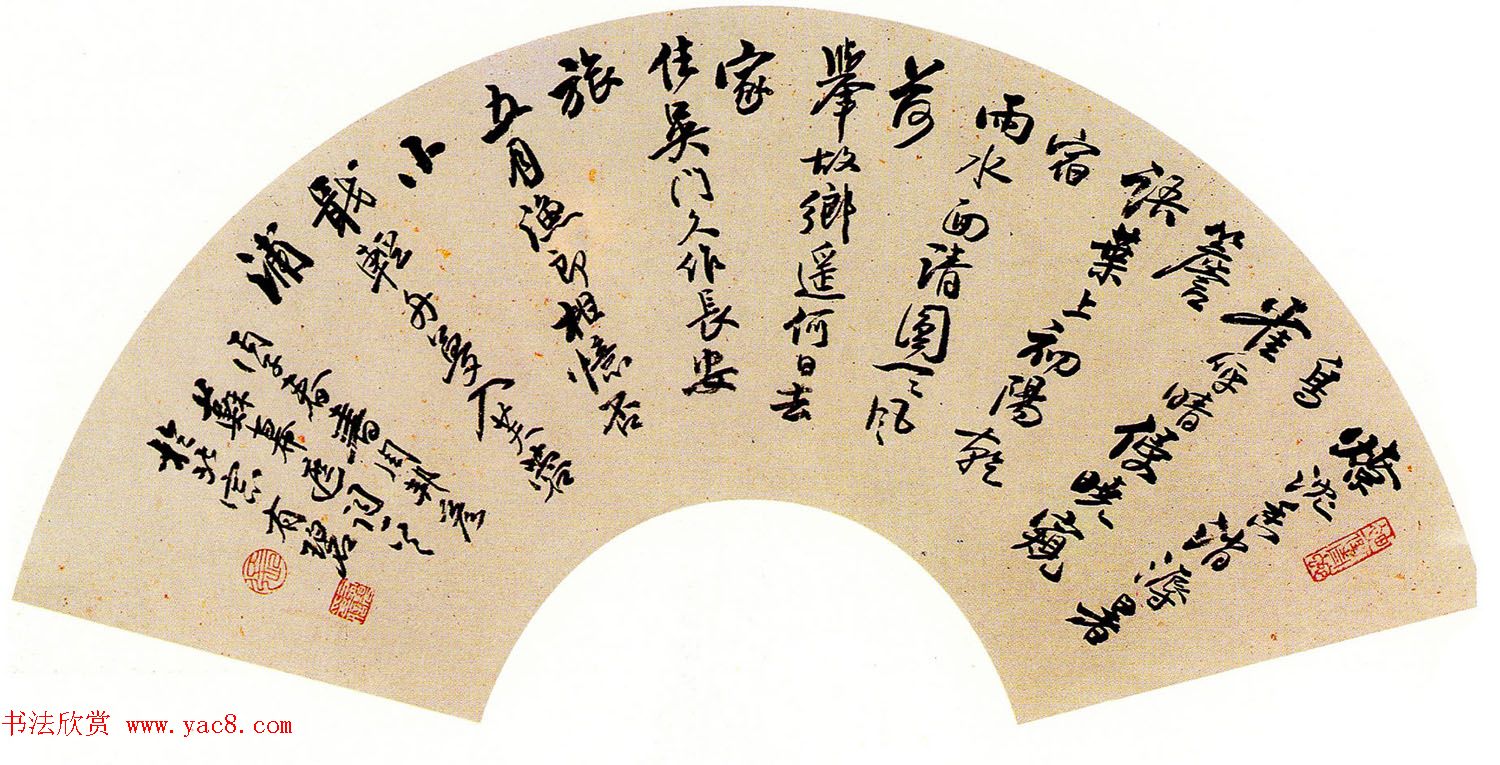 燎沈香消溽暑
鳥
雀呼晴侵曉窺
簷
語葉上初陽乾
宿
雨水面清圓一一風
荷
舉故鄉遥何日去
家
住吳門久作長安
旅
五月漁郎相憶否
小
楫輕舟夢入芙蓉
浦
丙子春書周邦彥
蘇幕遮詞
於北京有碧
书法欣赏 www.yac8.com